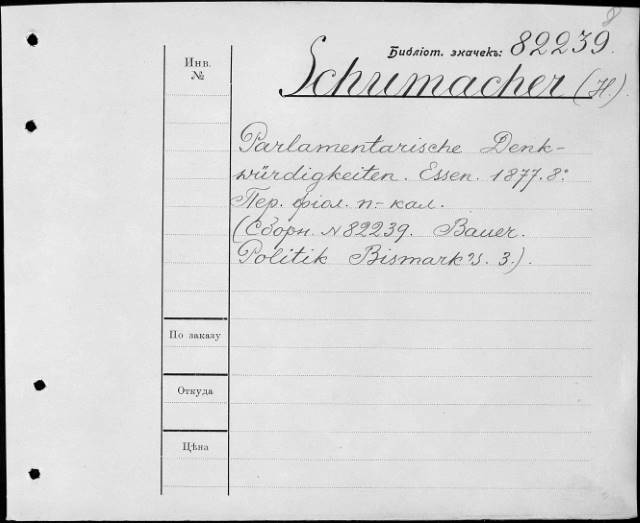 8
Библіот. значекъ: 82239.
Инв.
№
Schumacher (H).
Parlamentarische Denk-
würdigkeiten. Essen. 1877. 8º
Пер. фіол. п.-кал.
(Сборн. №82239. Bauer.
Politik Bismark's. 3.).
По заказу
Откуда
Цѣна